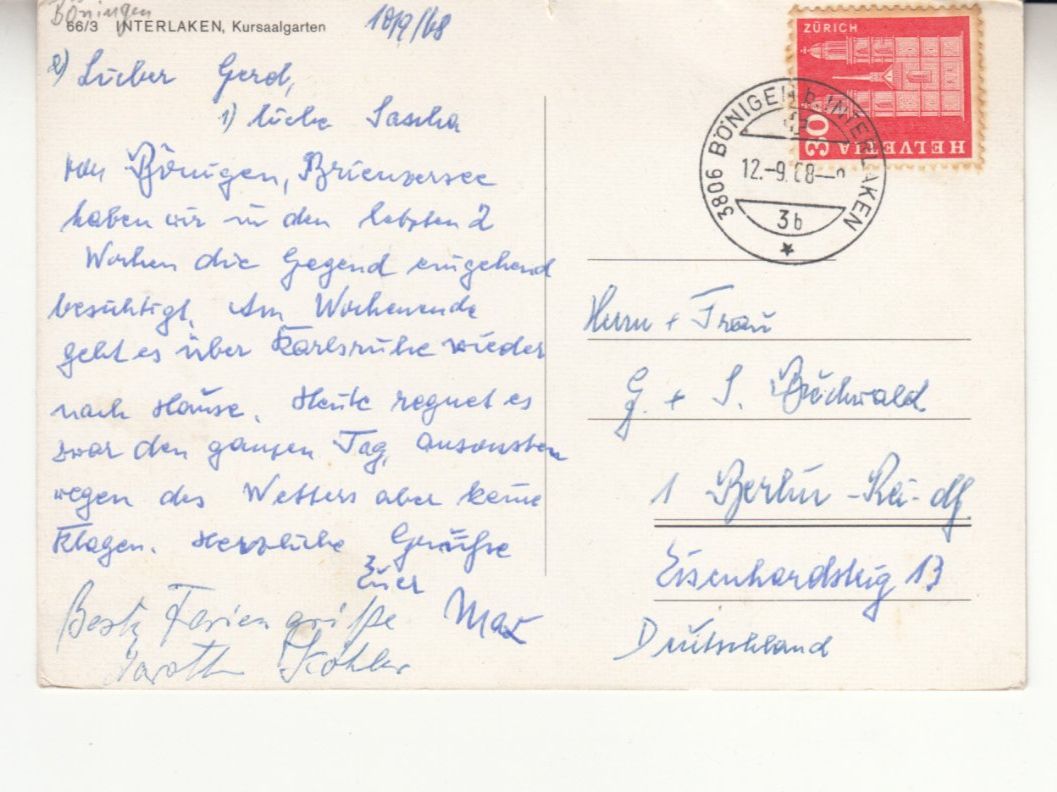 Böningen
66/3 INTERLAKEN, Kursaalgarten
10/9/68
2) Lieber Gerd,
1) liebe Sascha
von Bönigen, Brienzersee
haben wir in den letzten 2
Wochen die Gegend eingehend
besichtigt. Am Wochenende
geht es über Karlsruhe wieder
nach Hause. Heute regnet es
zwar den ganzen Tag, ansonsten
wegen des Wetters aber keine
Klagen. Herzliche Grüße
Euer
Max
Beste Feriengrüße
Köhler
ZÜRICH
30
HELVETIA
3806 BÖNIGEN b. INTERLAKEN
12.-9.68
3b
Herrn + Frau
G. + S. Buchwald
1 Berlin-Rei-df
Eisenhardsteig 13
Deutschland